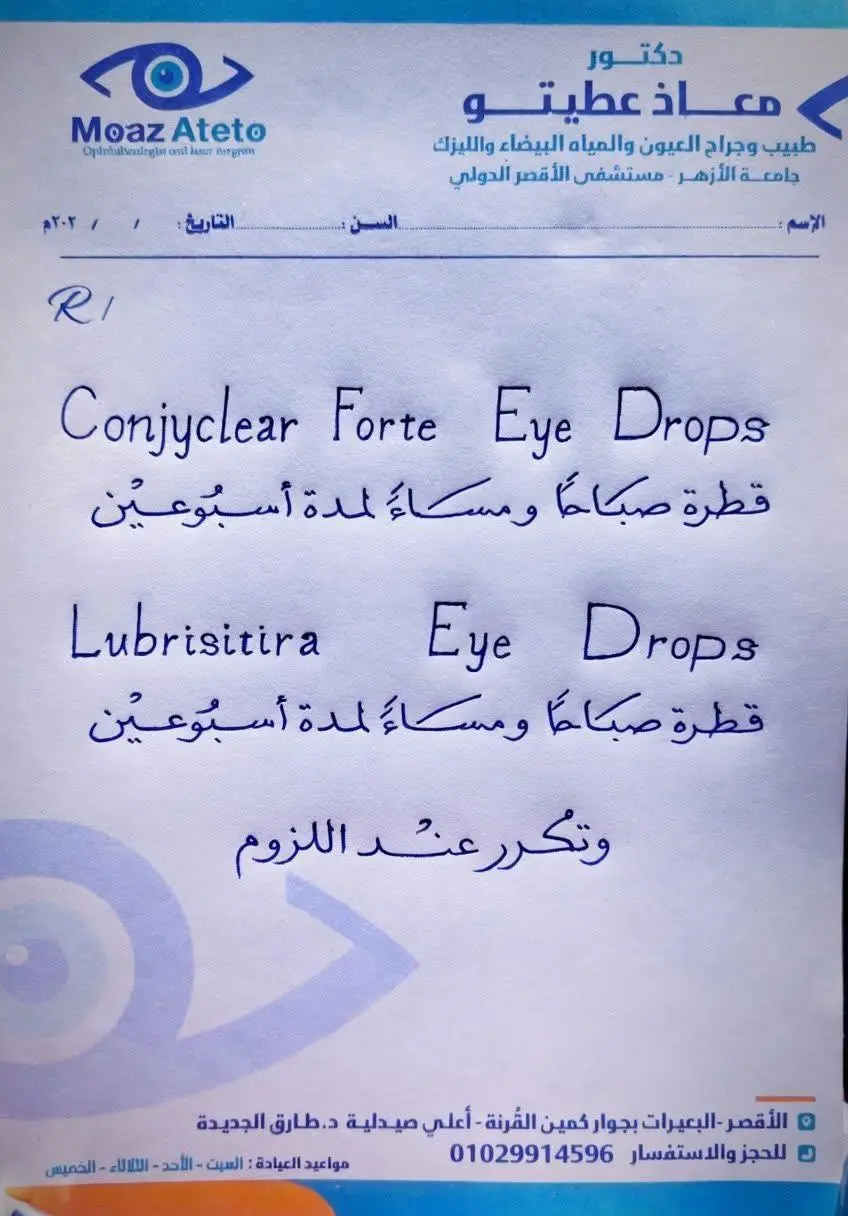 Moaz Ateto
Ophthalmologist and laser surgeon
دكتـــور
معـــاذ عطيتـــو
طبيب وجراح العيون والمياه البيضاء والليزك
جامعـة الأزهـر - مستشفى الأقصر الدولي
الإسم : السـن : التاريخ : / / ٢٠٢م
R/
Conjyclear Forte Eye Drops
قطرة صباحًا ومساءً لمدة أسبُوعيْن
Lubrisitira Eye Drops
قطرة صباحًا ومساءً لمدة أسبُوعيْن
وتكُرر عنْد اللزوم
الأقصر -البعيرات بجوار كمين القُرنة - أعلي صيدلية د.طارق الجديدة
للحجز والاستفسار 01029914596
مواعيد العيادة : السبت - الأحد - الثلاثاء - الخميس